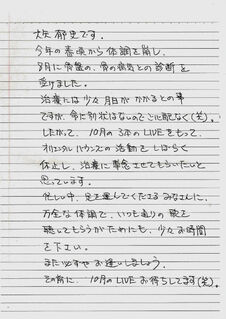 大矢 郁史です。
今年の春頃から体調を崩し、
8月に骨盤の、骨の病気との診断を
受けました。
治療には少々月日がかかるとの事
ですが、命に別状はないのでご心配なく(笑)。
したがって、10月の3本のLIVEをもって、
オリエンタルバウンズの活動をしばらく
休止し、治療に専念させてもらいたいと
思っています。
忙しい中、足を運んでくださるみなさんに、
万全な体調で、いつも通りの歌を
聴いてもらうがためにも、少々お時間
を下さい。
また必ずやお逢いしましょう。
その前に、10月のLIVEお待ちしてます(笑)。